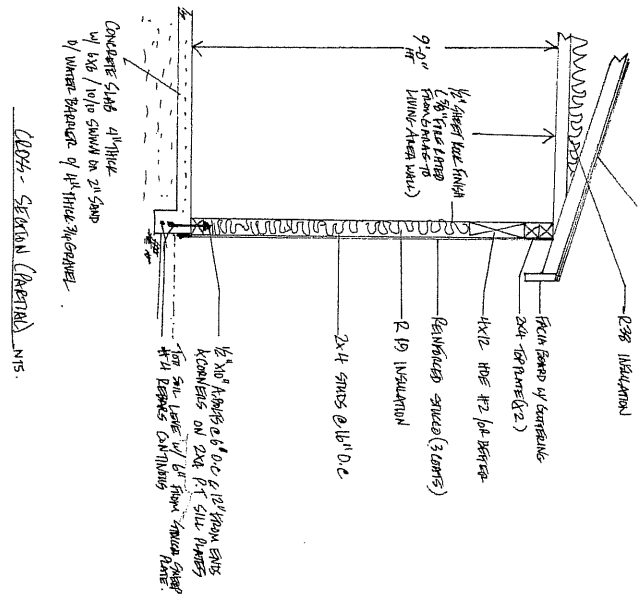 R-38 INSULATION
FACIA BOARD W/ GUTTERING
2X4 TOP PLATE (X2)
4X12 HDE #2 / OR BETTER
REINFORCED STUCCO (3 COATS)
R 19 INSULATION
2X4 STUDS @ 16" O.C
1/2" X10" A.BOLTS @ 6' O.C & 12" FROM ENDS
& CORNERS ON 2X4 P.T SILL PLATES
TOP SOIL LEVEL W/ 6" FROM STUCCO SREEP
PLATE.
#4 REBARS CONTINUOUS
9'-0"
HT
1/2" SHEET ROCK FINISH
( 5/8" FIRE RATED
FROM GARAGE TO
LIVING AREA WALL)
CONCRETE SLAB 4" THICK
W/ 6X6 / 10/10 SWWM ON 2" SAND
O/ WATER BARRIER O/ 4" THICK 3/4 GRAVEL.
CROSS-SECTION (PARTIAL) NTS.